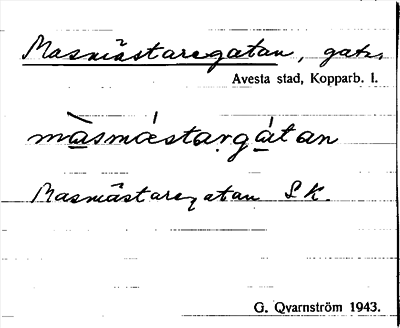 Masmästaregatan, gata,
Avesta stad, Kopparb. l.
màsmǽstarg̣átan
Masmästaregatan SK.
G. Qvarnström 1943.